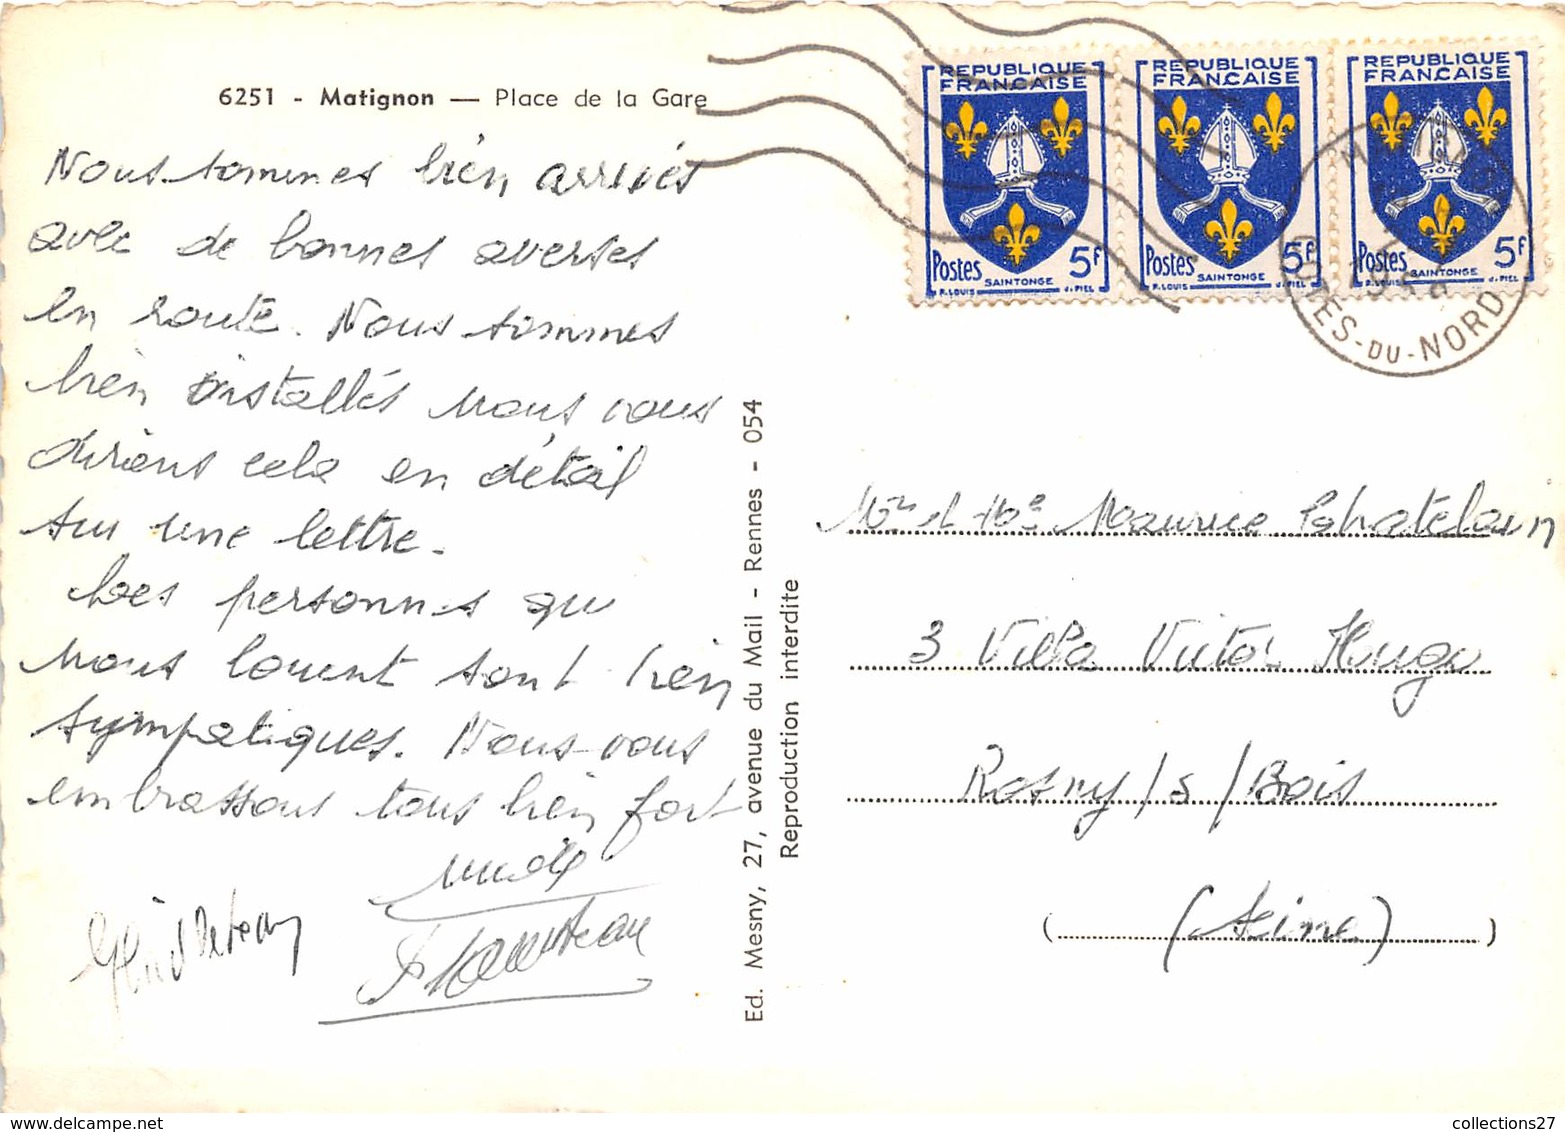 6251 - Matignon — Place de la Gare
Nous sommes bien arrivés
avec de bonnes averses
en route. Nous sommes
bien installés nous vous
dirions cela en détail
sur une lettre.
Les personnes qui
nous louent sont bien
sympatiques. Nous vous
embrassons tous bien fort
Ed. Mesny, 27, avenue du Mail - Rennes - 054
Reproduction interdite
REPUBLIQUE FRANÇAISE
Postes 5F
SAINTONGE
R. LOUIS J. PIEL
REPUBLIQUE FRANÇAISE
Postes 5F
SAINTONGE
R. LOUIS J. PIEL
REPUBLIQUE FRANÇAISE
Postes 5F
SAINTONGE
R. LOUIS J. PIEL
MATIGNON
COTES-DU-NORD
Mr et Me Maurice Chatelain
3 Villa Victor Hugo
Rosny / s / Bois
(Seine)
collections27